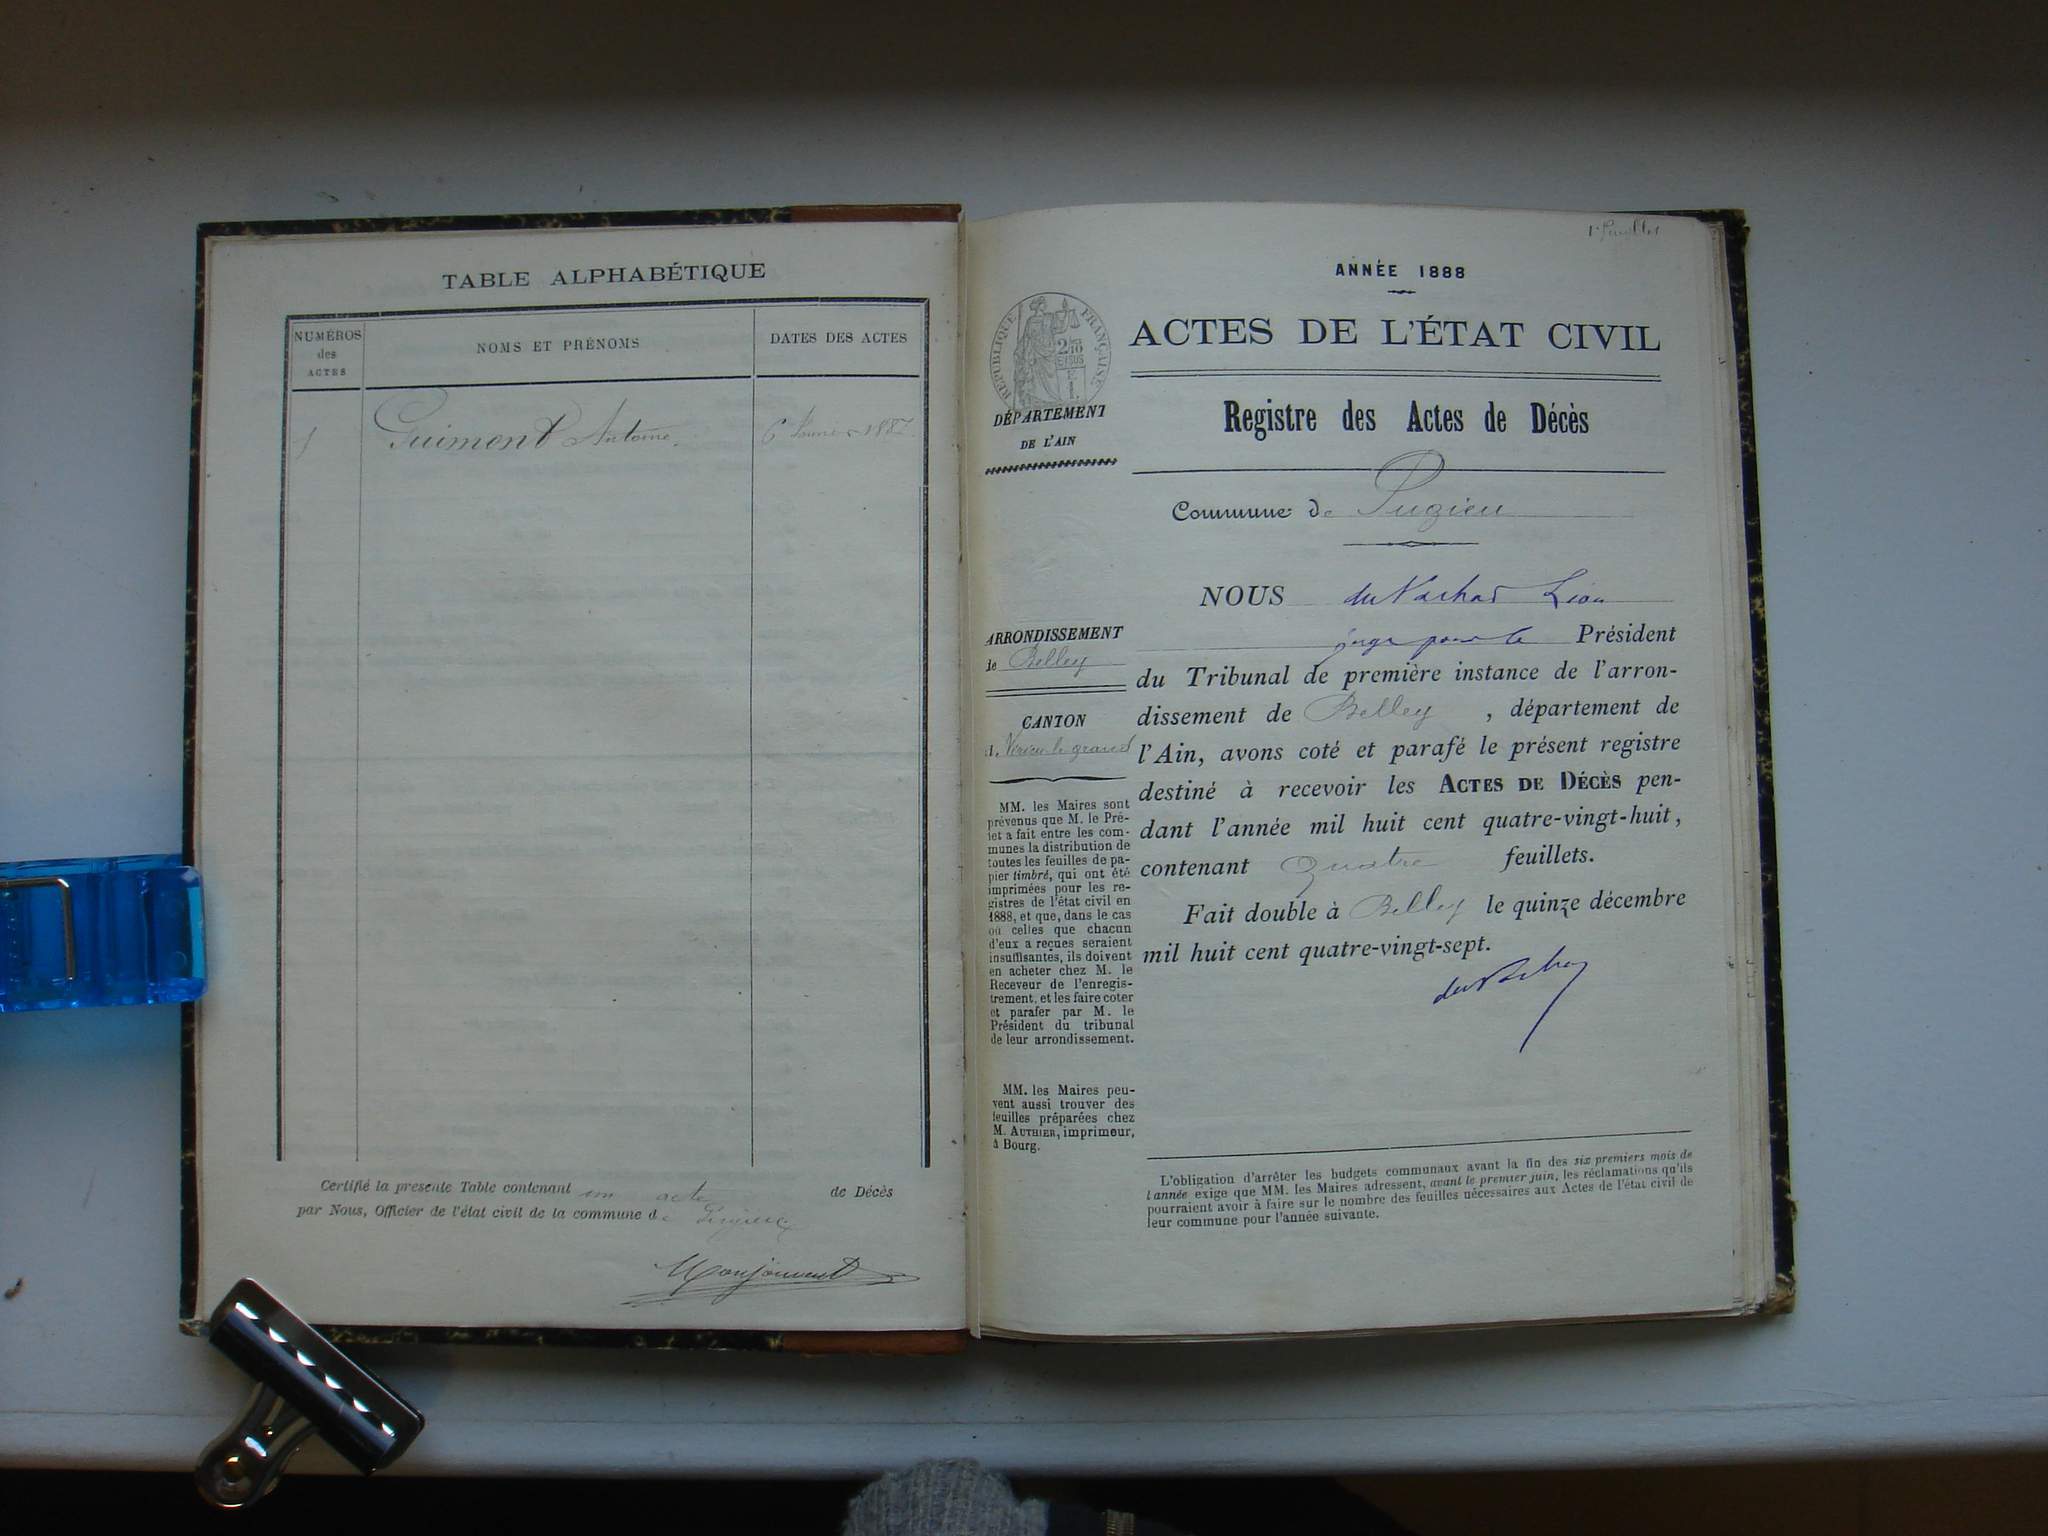 TABLE ALPHABÉTIQUE
NUMÉROS
des
ACTES
NOMS ET PRÉNOMS
DATES DES ACTES
1
Guimont Antoine.
6 Janvier 1887.
Certifié la présente Table contenant un acte de Décès
par Nous, Officier de l'état civil de la commune de Pugieu
Monjouvent
1er feuillet
ANNÉE 1888
ACTES DE L'ÉTAT CIVIL
RÉPUBLIQUE FRANÇAISE
2/10
EN SUS
DÉPARTEMENT
DE L'AIN
Registre des Actes de Décès
Commune de Pugieu
NOUS Léon
juge pour le Président
du Tribunal de première instance de l'arron-
dissement de Belley, département de
l'Ain, avons coté et parafé le présent registre
destiné à recevoir les ACTES DE DÉCÈS pen-
dant l'année mil huit cent quatre-vingt-huit,
contenant quatre feuillets.
Fait double à Belley le quinze décembre
mil huit cent quatre-vingt-sept.
ARRONDISSEMENT
de Belley
CANTON
d. Virieu le grand
MM. les Maires sont
prévenus que M. le Pré-
fet a fait entre les com-
munes la distribution de
toutes les feuilles de pa-
pier timbré, qui ont été
imprimées pour les re-
gistres de l'état civil en
1888, et que, dans le cas
où celles que chacun
d'eux a reçues seraient
insuffisantes, ils doivent
en acheter chez M. le
Receveur de l'enregis-
trement, et les faire coter
et parafer par M. le
Président du tribunal
de leur arrondissement.
MM. les Maires peu-
vent aussi trouver des
feuilles préparées chez
M. AUTHIER, imprimeur,
à Bourg.
L'obligation d'arrêter les budgets communaux avant la fin des six premiers mois de
l'année exige que MM. les Maires adressent, avant le premier juin, les réclamations qu'ils
pourraient avoir à faire sur le nombre des feuilles nécessaires aux Actes de l'état civil de
leur commune pour l'année suivante.